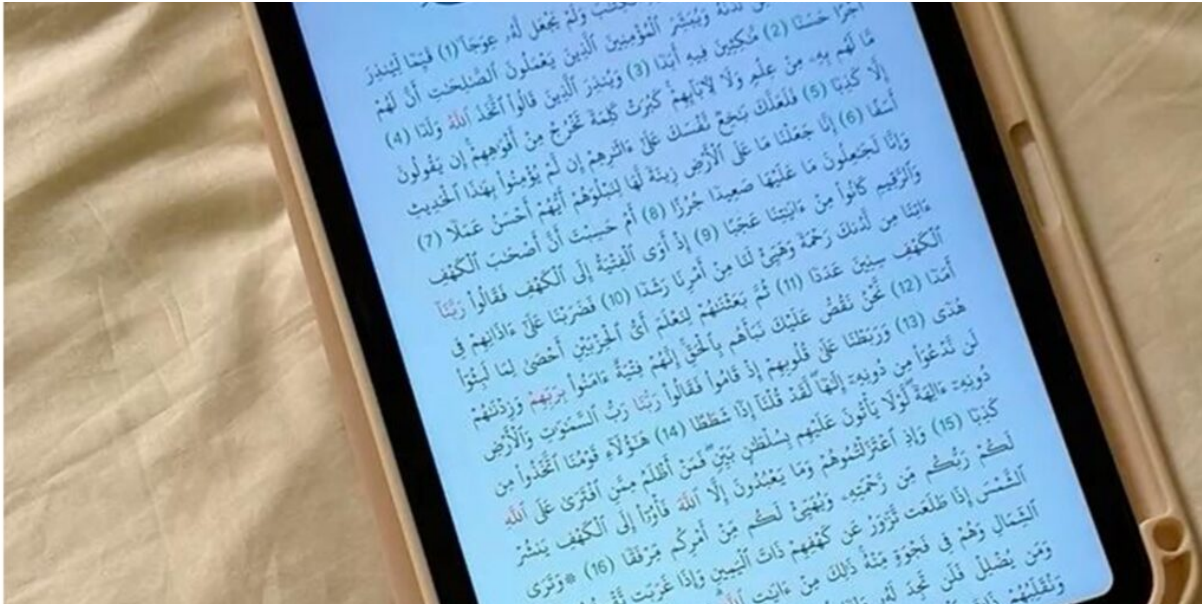 ٱلْكِتَٰبَ وَلَمْ يَجْعَل لَّهُۥ عِوَجَاۜ (1) قَيِّمًا لِّيُنذِرَ
مِّن لَّدُنْهُ وَيُبَشِّرَ ٱلْمُؤْمِنِينَ ٱلَّذِينَ يَعْمَلُونَ ٱلصَّٰلِحَٰتِ أَنَّ لَهُمْ
أَجْرًا حَسَنًا (2) مَّٰكِثِينَ فِيهِ أَبَدًا (3) وَيُنذِرَ ٱلَّذِينَ قَالُوا۟ ٱتَّخَذَ ٱللَّهُ وَلَدًا (4)
مَّا لَهُم بِهِۦ مِنْ عِلْمٍ وَلَا لِءَابَآئِهِمْ ۚ كَبُرَتْ كَلِمَةً تَخْرُجُ مِنْ أَفْوَٰهِهِمْ ۚ إِن يَقُولُونَ
إِلَّا كَذِبًا (5) فَلَعَلَّكَ بَٰخِعٌ نَّفْسَكَ عَلَىٰٓ ءَاثَٰرِهِمْ إِن لَّمْ يُؤْمِنُوا۟ بِهَٰذَا ٱلْحَدِيثِ
أَسَفًا (6) إِنَّا جَعَلْنَا مَا عَلَى ٱلْأَرْضِ زِينَةً لَّهَا لِنَبْلُوَهُمْ أَيُّهُمْ أَحْسَنُ عَمَلًا (7)
وَإِنَّا لَجَٰعِلُونَ مَا عَلَيْهَا صَعِيدًا جُرُزًا (8) أَمْ حَسِبْتَ أَنَّ أَصْحَٰبَ ٱلْكَهْفِ
وَٱلرَّقِيمِ كَانُوا۟ مِنْ ءَايَٰتِنَا عَجَبًا (9) إِذْ أَوَى ٱلْفِتْيَةُ إِلَى ٱلْكَهْفِ فَقَالُوا۟ رَبَّنَآ
ءَاتِنَا مِن لَّدُنكَ رَحْمَةً وَهَيِّئْ لَنَا مِنْ أَمْرِنَا رَشَدًا (10) فَضَرَبْنَا عَلَىٰٓ ءَاذَانِهِمْ فِى
ٱلْكَهْفِ سِنِينَ عَدَدًا (11) ثُمَّ بَعَثْنَٰهُمْ لِنَعْلَمَ أَىُّ ٱلْحِزْبَيْنِ أَحْصَىٰ لِمَا لَبِثُوٓا۟
أَمَدًا (12) نَّحْنُ نَقُصُّ عَلَيْكَ نَبَأَهُم بِٱلْحَقِّ ۚ إِنَّهُمْ فِتْيَةٌ ءَامَنُوا۟ بِرَبِّهِمْ وَزِدْنَٰهُمْ
هُدًى (13) وَرَبَطْنَا عَلَىٰ قُلُوبِهِمْ إِذْ قَامُوا۟ فَقَالُوا۟ رَبُّنَا رَبُّ ٱلسَّمَٰوَٰتِ وَٱلْأَرْضِ
لَن نَّدْعُوَا۟ مِن دُونِهِۦٓ إِلَٰهًا ۖ لَّقَدْ قُلْنَآ إِذًا شَطَطًا (14) هَٰٓؤُلَآءِ قَوْمُنَا ٱتَّخَذُوا۟ مِن
دُونِهِۦٓ ءَالِهَةً ۖ لَّوْلَا يَأْتُونَ عَلَيْهِم بِسُلْطَٰنٍۭ بَيِّنٍ ۖ فَمَنْ أَظْلَمُ مِمَّنِ ٱفْتَرَىٰ عَلَى ٱللَّهِ
كَذِبًا (15) وَإِذِ ٱعْتَزَلْتُمُوهُمْ وَمَا يَعْبُدُونَ إِلَّا ٱللَّهَ فَأْوُۥٓا۟ إِلَى ٱلْكَهْفِ يَنشُرْ
لَكُمْ رَبُّكُم مِّن رَّحْمَتِهِۦ وَيُهَيِّئْ لَكُم مِّنْ أَمْرِكُم مِّرْفَقًا (16) ۞ وَتَرَى
ٱلشَّمْسَ إِذَا طَلَعَت تَّزَٰوَرُ عَن كَهْفِهِمْ ذَاتَ ٱلْيَمِينِ وَإِذَا غَرَبَت
ٱلشِّمَالِ وَهُمْ فِى فَجْوَةٍ مِّنْهُ ۚ ذَٰلِكَ مِنْ ءَايَٰتِ
وَمَن يُضْلِلْ فَلَن تَجِدَ لَهُۥ
وَنُقَلِّبُهُمْ